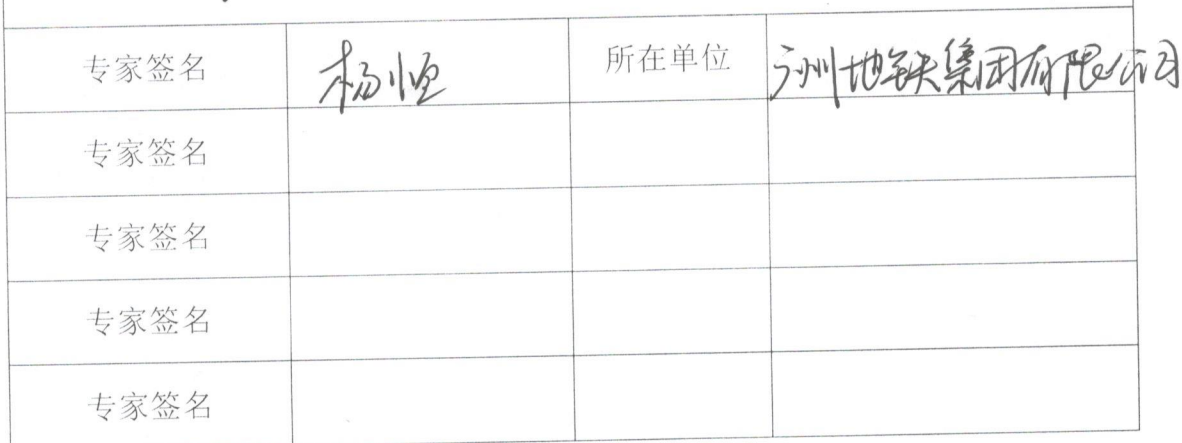 专家签名 杨恒 所在单位 广州地铁集团有限公司
专家签名
专家签名
专家签名
专家签名